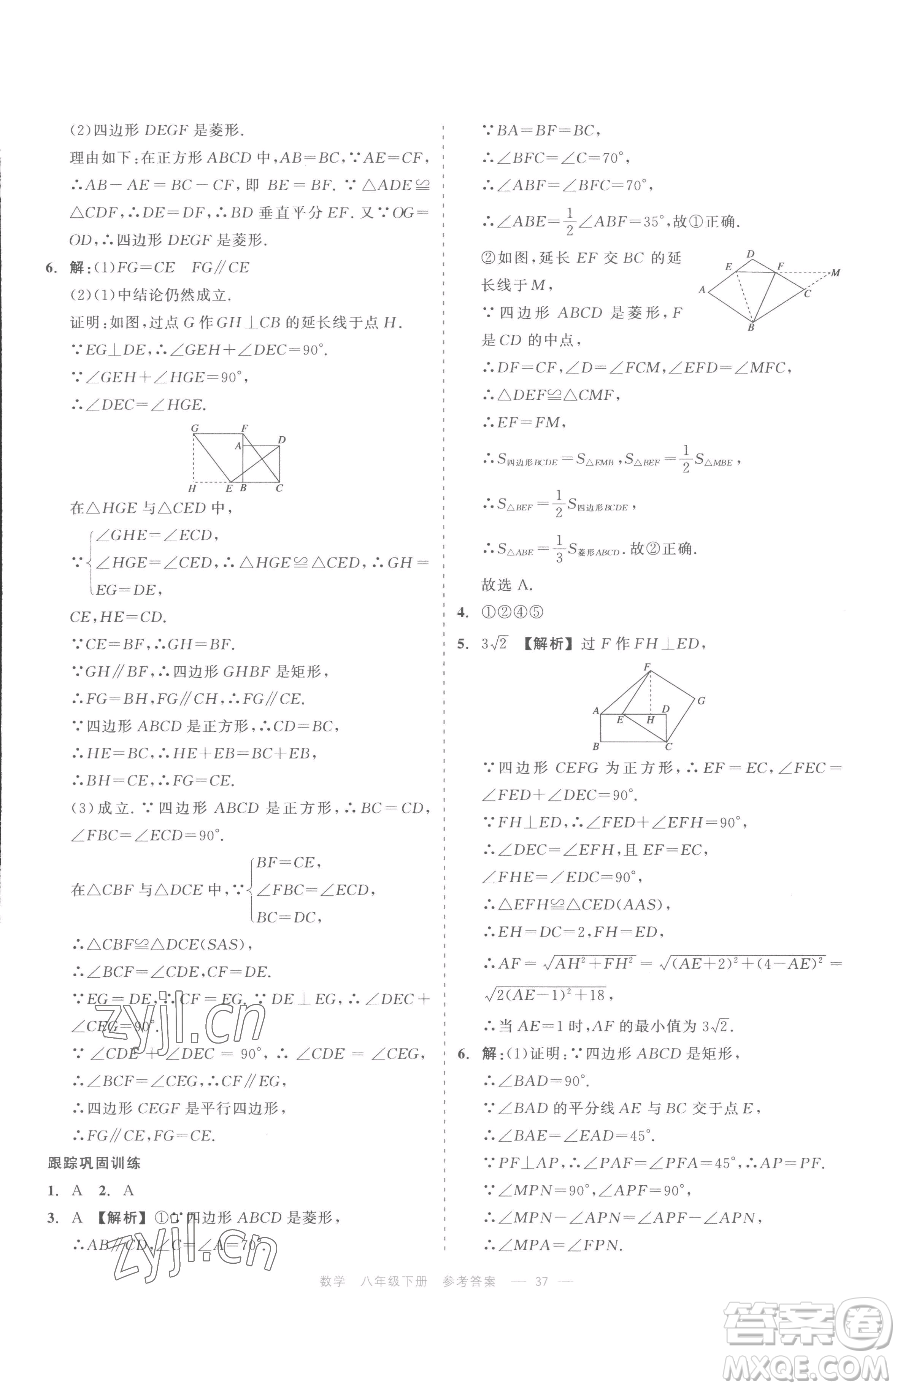 (2)四边形 DEGF 是菱形.
理由如下:在正方形 ABCD 中,AB=BC,∵AE=CF,
∴AB-AE=BC-CF,即 BE=BF.∵△ADE≌
△CDF,∴DE=DF,∴BD 垂直平分 EF.又∵OG=
OD,∴四边形 DEGF 是菱形.
6. 解:(1)FG=CE FG∥CE
(2)(1)中结论仍然成立.
证明:如图,过点 G 作 GH⊥CB 的延长线于点 H.
∵EG⊥DE,∴∠GEH+∠DEC=90°.
∵∠GEH+∠HGE=90°,
∴∠DEC=∠HGE.
G F
A D
H E B C
在△HGE 与△CED 中,
∠GHE=∠ECD,
∵ ∠HGE=∠CED, ∴△HGE≌△CED,∴GH=
EG=DE,
CE,HE=CD.
∵CE=BF,∴GH=BF.
∵GH∥BF,∴四边形 GHBF 是矩形,
∴FG=BH,FG∥CH,∴FG∥CE.
∵四边形 ABCD 是正方形,∴CD=BC,
∴HE=BC,∴HE+EB=BC+EB,
∴BH=CE,∴FG=CE.
(3)成立.∵四边形 ABCD 是正方形,∴BC=CD,
∠FBC=∠ECD=90°.
BF=CE,
在△CBF 与△DCE 中,∵ ∠FBC=∠ECD,
BC=DC,
∴△CBF≌△DCE(SAS),
∴∠BCF=∠CDE,CF=DE.
∵EG=DE,∴CF=EG.∵DE⊥EG,∴∠DEC+
∠CEG=90°.
∵∠CDE+∠DEC=90°,∴∠CDE=∠CEG,
∴∠BCF=∠CEG,∴CF∥EG,
∴四边形 CEGF 是平行四边形,
∴FG∥CE,FG=CE.
跟踪巩固训练
1. A 2. A
3. A 【解析】①∵四边形 ABCD 是菱形,
∴AB∥CD,∠C=∠A=70°.
∵BA=BF=BC,
∴∠BFC=∠C=70°,
∴∠ABF=∠BFC=70°,
∴∠ABE=1/2∠ABF=35°,故①正确.
②如图,延长 EF 交 BC 的延
长线于 M,
∵四边形 ABCD 是菱形,F
是 CD 的中点,
D
E F M
A C
B
∴DF=CF,∠D=∠FCM,∠EFD=∠MFC,
∴△DEF≌△CMF,
∴EF=FM,
∴S四边形BCDE=S△EMB,S△BEF=1/2S△MBE,
∴S△BEF=1/2S四边形BCDE,
∴S△ABE=1/3S菱形ABCD.故②正确.
故选 A.
4. ①②④⑤
5. 3√2 【解析】过 F 作 FH⊥ED,
F
G
A E H D
B C
∵四边形 CEFG 为正方形,∴EF=EC,∠FEC=
∠FED+∠DEC=90°.
∵FH⊥ED,∴∠FED+∠EFH=90°,
∴∠DEC=∠EFH,且 EF=EC,
∠FHE=∠EDC=90°,
∴△EFH≌△CED(AAS),
∴EH=DC=2,FH=ED,
∴AF=√(AH²+FH²)=√((AE+2)²+(4-AE)²)=
√(2(AE-1)²+18),
∴当 AE=1 时,AF 的最小值为 3√2.
6. 解:(1)证明:∵四边形 ABCD 是矩形,
∴∠BAD=90°.
∵∠BAD 的平分线 AE 与 BC 交于点 E,
∴∠BAE=∠EAD=45°.
∵PF⊥AP,∴∠PAF=∠PFA=45°,∴AP=PF.
∵∠MPN=90°,∠APF=90°,
∴∠MPN-∠APN=∠APF-∠APN,
∴∠MPA=∠FPN.
数学 八年级下册 参考答案 — 37 —
zyjl.cn
zyjl.cn
答案圈
MXQE.COM